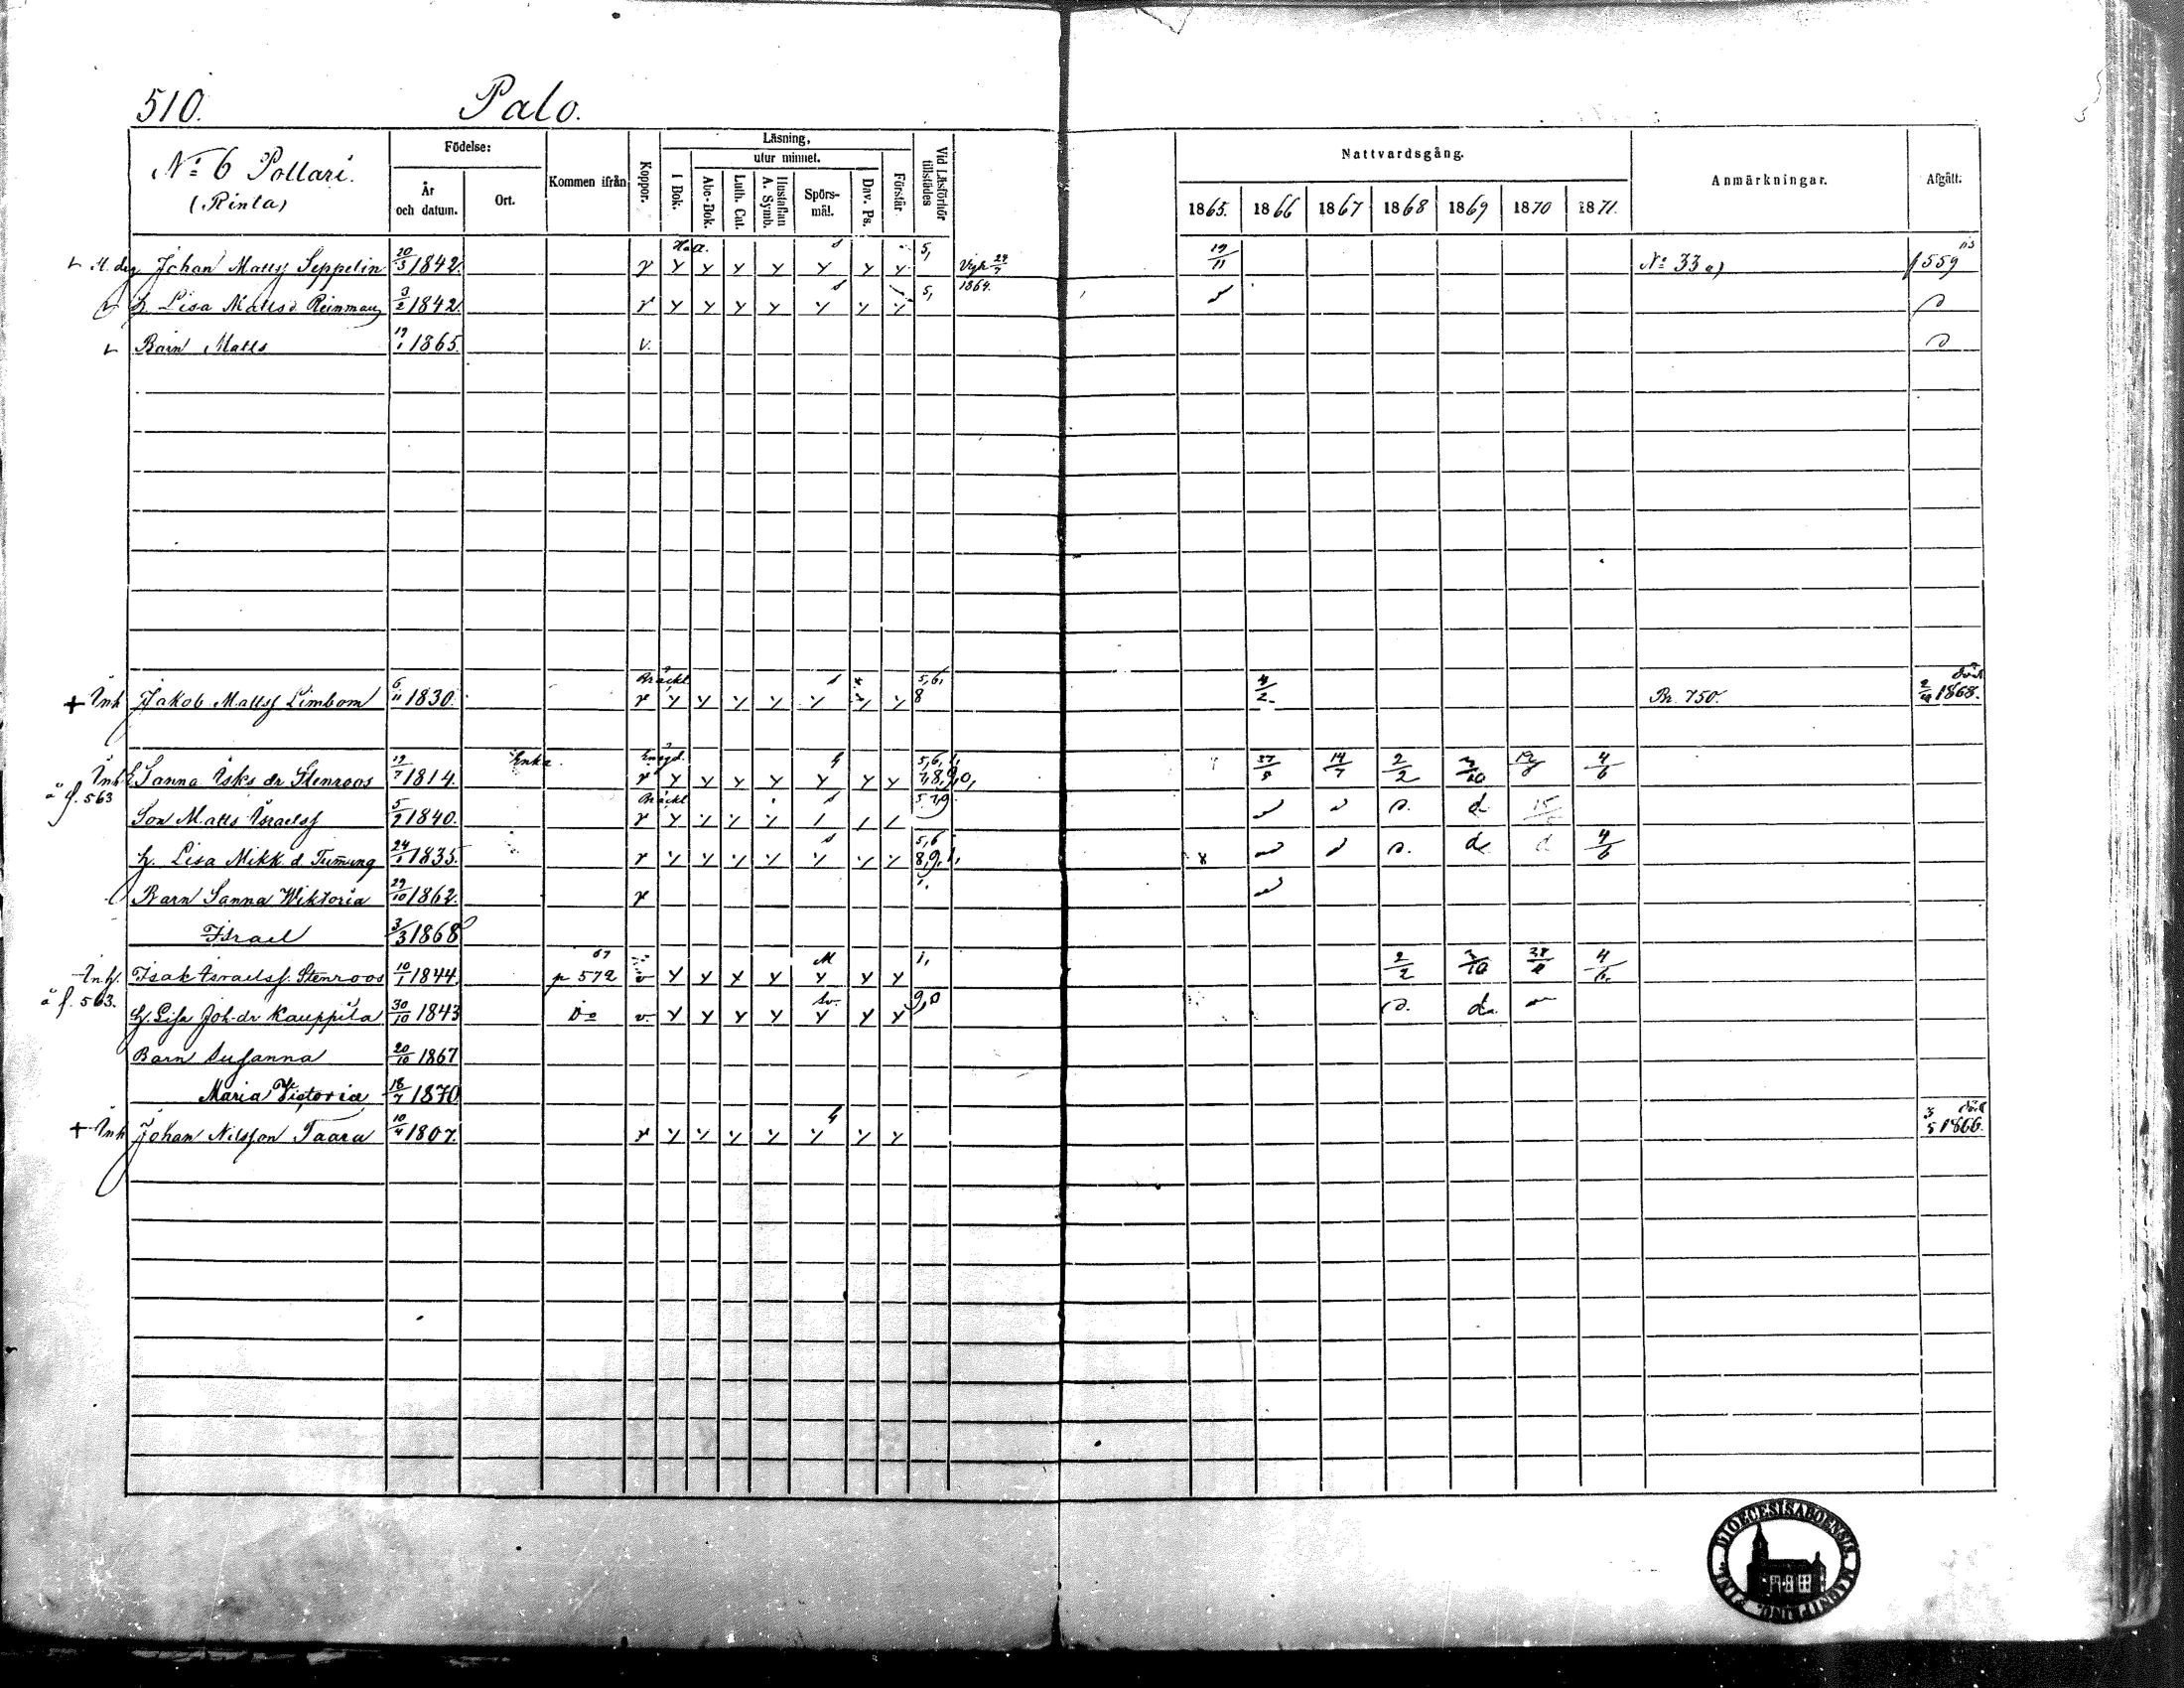 510. Palo.
Nº 6 Pollari.
(Rinta)
Födelse:
År och datum.
Ort.
Kommen ifrån
Koppor.
Läsning,
utur minnet.
I Bok.
Abc-Bok.
Luth. Cat.
Hustaflan A. Symb.
Spörsmål.
Dav. Ps.
Förstår
Vid Läsförhör tillstädes
Nattvardsgång.
1865. 1866 1867 1868 1869 1870 1871.
Anmärkningar.
Afgått.
Johan Matts Seppelin 20/3 1842. v y y y y y y y 5, Vigde 24/7 1864. 19/11 Nº 33 a) 559
h. Lisa Mattsd. Reinman 3/2 1842. v y y y y y y y 5,
Barn Matts 19/1 1865. v.
+ Inh Jakob Mattsf Limbom 6/11 1830. Bräckl v y y y y y y y 5,6, 8 4/2 Br. 750. död 1868.
Inh. Sanna Isks dr Stenroos 19/7 1814. Enka. v y y y y y y y 14/7 2/2 4/6
å f. 563
Son Matts Israelsf 1840. Bräckl v y d
h. Lisa Mikk. d. 24/1 1835. v y y y y y y y 5,6 8,9,1, d 4/6
Barn Sanna Wiktoria 29/10 1862. v
Israel 3/3 1868
Inh. Isak Israelsf. Stenroos 10/1 1844. 67 p 572 v y y y y y y y 1, 2/2 4
å f. 563.
h. Lisa Joh. dr Kauppila 30/10 1843 Do v. y y y y y y y 9,0 d.
Barn Susanna 20/10 1867
Maria Victoria 18/7 1870
+ Inh Johan Nilsson Taara 10/4 1807. v y y y y y y y död 3/5 1866.
FINL. DIOECESIS ABOENSIS MAGNI PRINC.